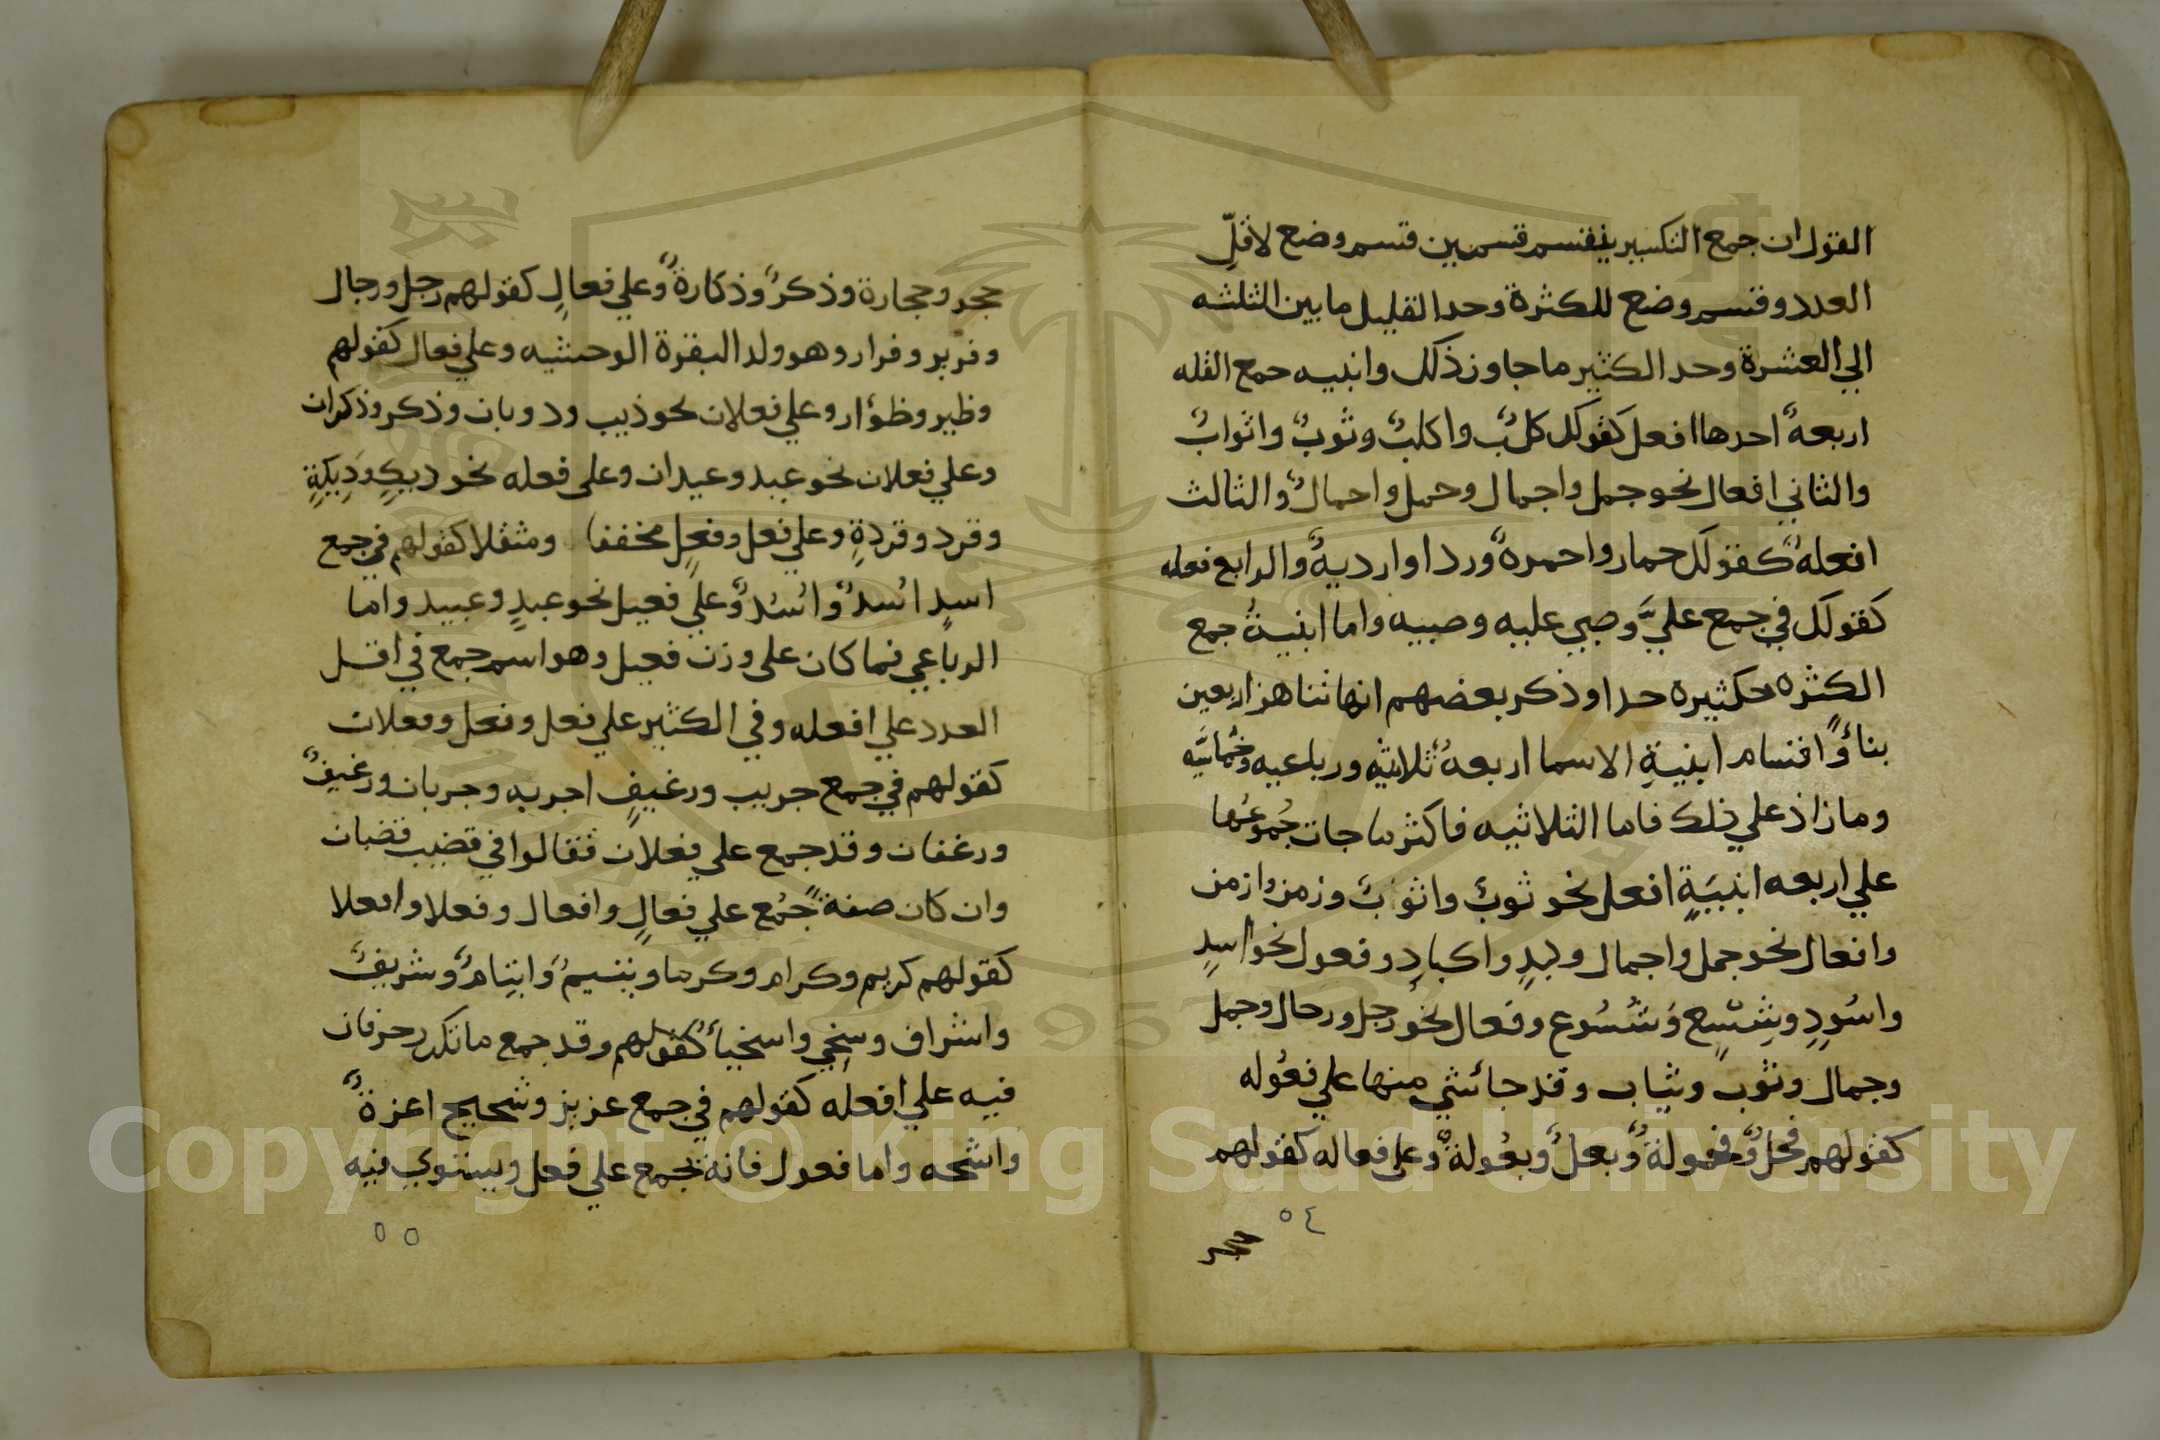 القول ان جمع التكسير ينقسم قسمين قسم وضع لاقلِّ
العدد وقسم وضع للكثرة وحد القليل ما بين الثلثه
الي العشرة وحد الكثير ما جاوز ذلك وابنيه جمع القله
اربعةٌ احدها افعل كقولك كلبٌ واكلبٌ وثوبٌ واثوابٌ
والثاني افعال نحو جمل واجمال وحمل واحمالٌ والثالث
افعلهٌ كقولك حمار واحمرهٌ وردا وارديهٌ والرابع فعله
كقولك في جمع عليٍّ وصبي عليه وصبيه واما ابنيةُ جمع
الكثره فكثيره جدا وذكر بعضهم انها تناهز اربعين
بناءً واقسام ابنيةِ الاسما اربعهٌ ثلاثيه ورباعيه وخماسيَّه
وما زاد علي ذلك فاما الثلاثيه فاكثر ما جات جُموعُها
علي اربعه ابنيَةٍ افعل نحو ثوبٌ واثوبٌ وزمن وازمن
وافعال نحو جمل واجمال وكبدٍ واكبادٍ وفعول نحو اسدٍ
واسُودٍ وشِسْعٍ وشُسُوع وفعال نحو رجل ورجال وجمل
وجمال وثوب وثياب وقد جا شي منها علي فعُوله
كقولهم فحلٌ وفحولةٌ وبعلٌ وبعُولةٌ وعلى فعاله كقولهم
حجر
٥٤
حجر وحجارة وذكرٌ وذكارةٌ وعلي فعالٍ كقولهم رجل ورجال
وفرير وفرار وهو ولد البقرة الوحشيه وعلي فعال كقولهم
وظير وظؤار وعلي فعلان نحو ذيب وذوبان وذكر وذكران
وعلي فعلان نحو عبد وعبدان وعلى فعله نحو ديكٍ ودِيكَةٍ
وقرد وقردةٍ وعلي فعل وفعلٍ مخففا ومثقلا كقولهم في جمع
اسدٍ اسْدٌ واسُدٌ وعلي فعيل نحو عبدٍ وعبيد واما
الرباعي فما كان على وزن فعيل وهو اسم جمع في اقل
العدد علي افعله وفي الكثير علي فعل وفعل وفعلان
كقولهم في جمع جريب ورغيفٍ اجربه وجربان ورغيفٌ
ورغفان وقد جمع علي فعلان فقالوا في قضيب قضبان
وان كان صفةً جُمع علي فعالٍ وافعال وفعلا وافعلا
كقولهم كريم وكرام وكرما ويتيمٌ وايتامٌ وشريفٌ
واشراف وسخي واسخياءُ كقولهم وقد جمع ما تكرر حرفان
فيه علي افعله كقولهم في جمع عزيز وشحيح اعزةٌ
واشحه واما فعول فانه يجمع علي فعل ويستوي فيه
٥٥
Copyright © King Saud University
1957